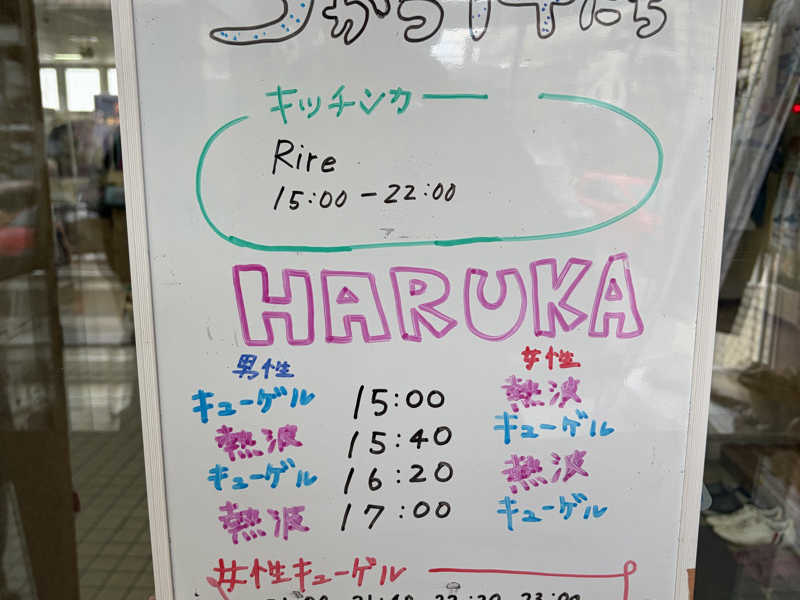 キッチンカー
Rire
15:00 - 22:00
HARUKA
男性 女性
キューゲル 15:00 熱波
熱波 15:40 キューゲル
キューゲル 16:20 熱波
熱波 17:00 キューゲル
女性キューゲル